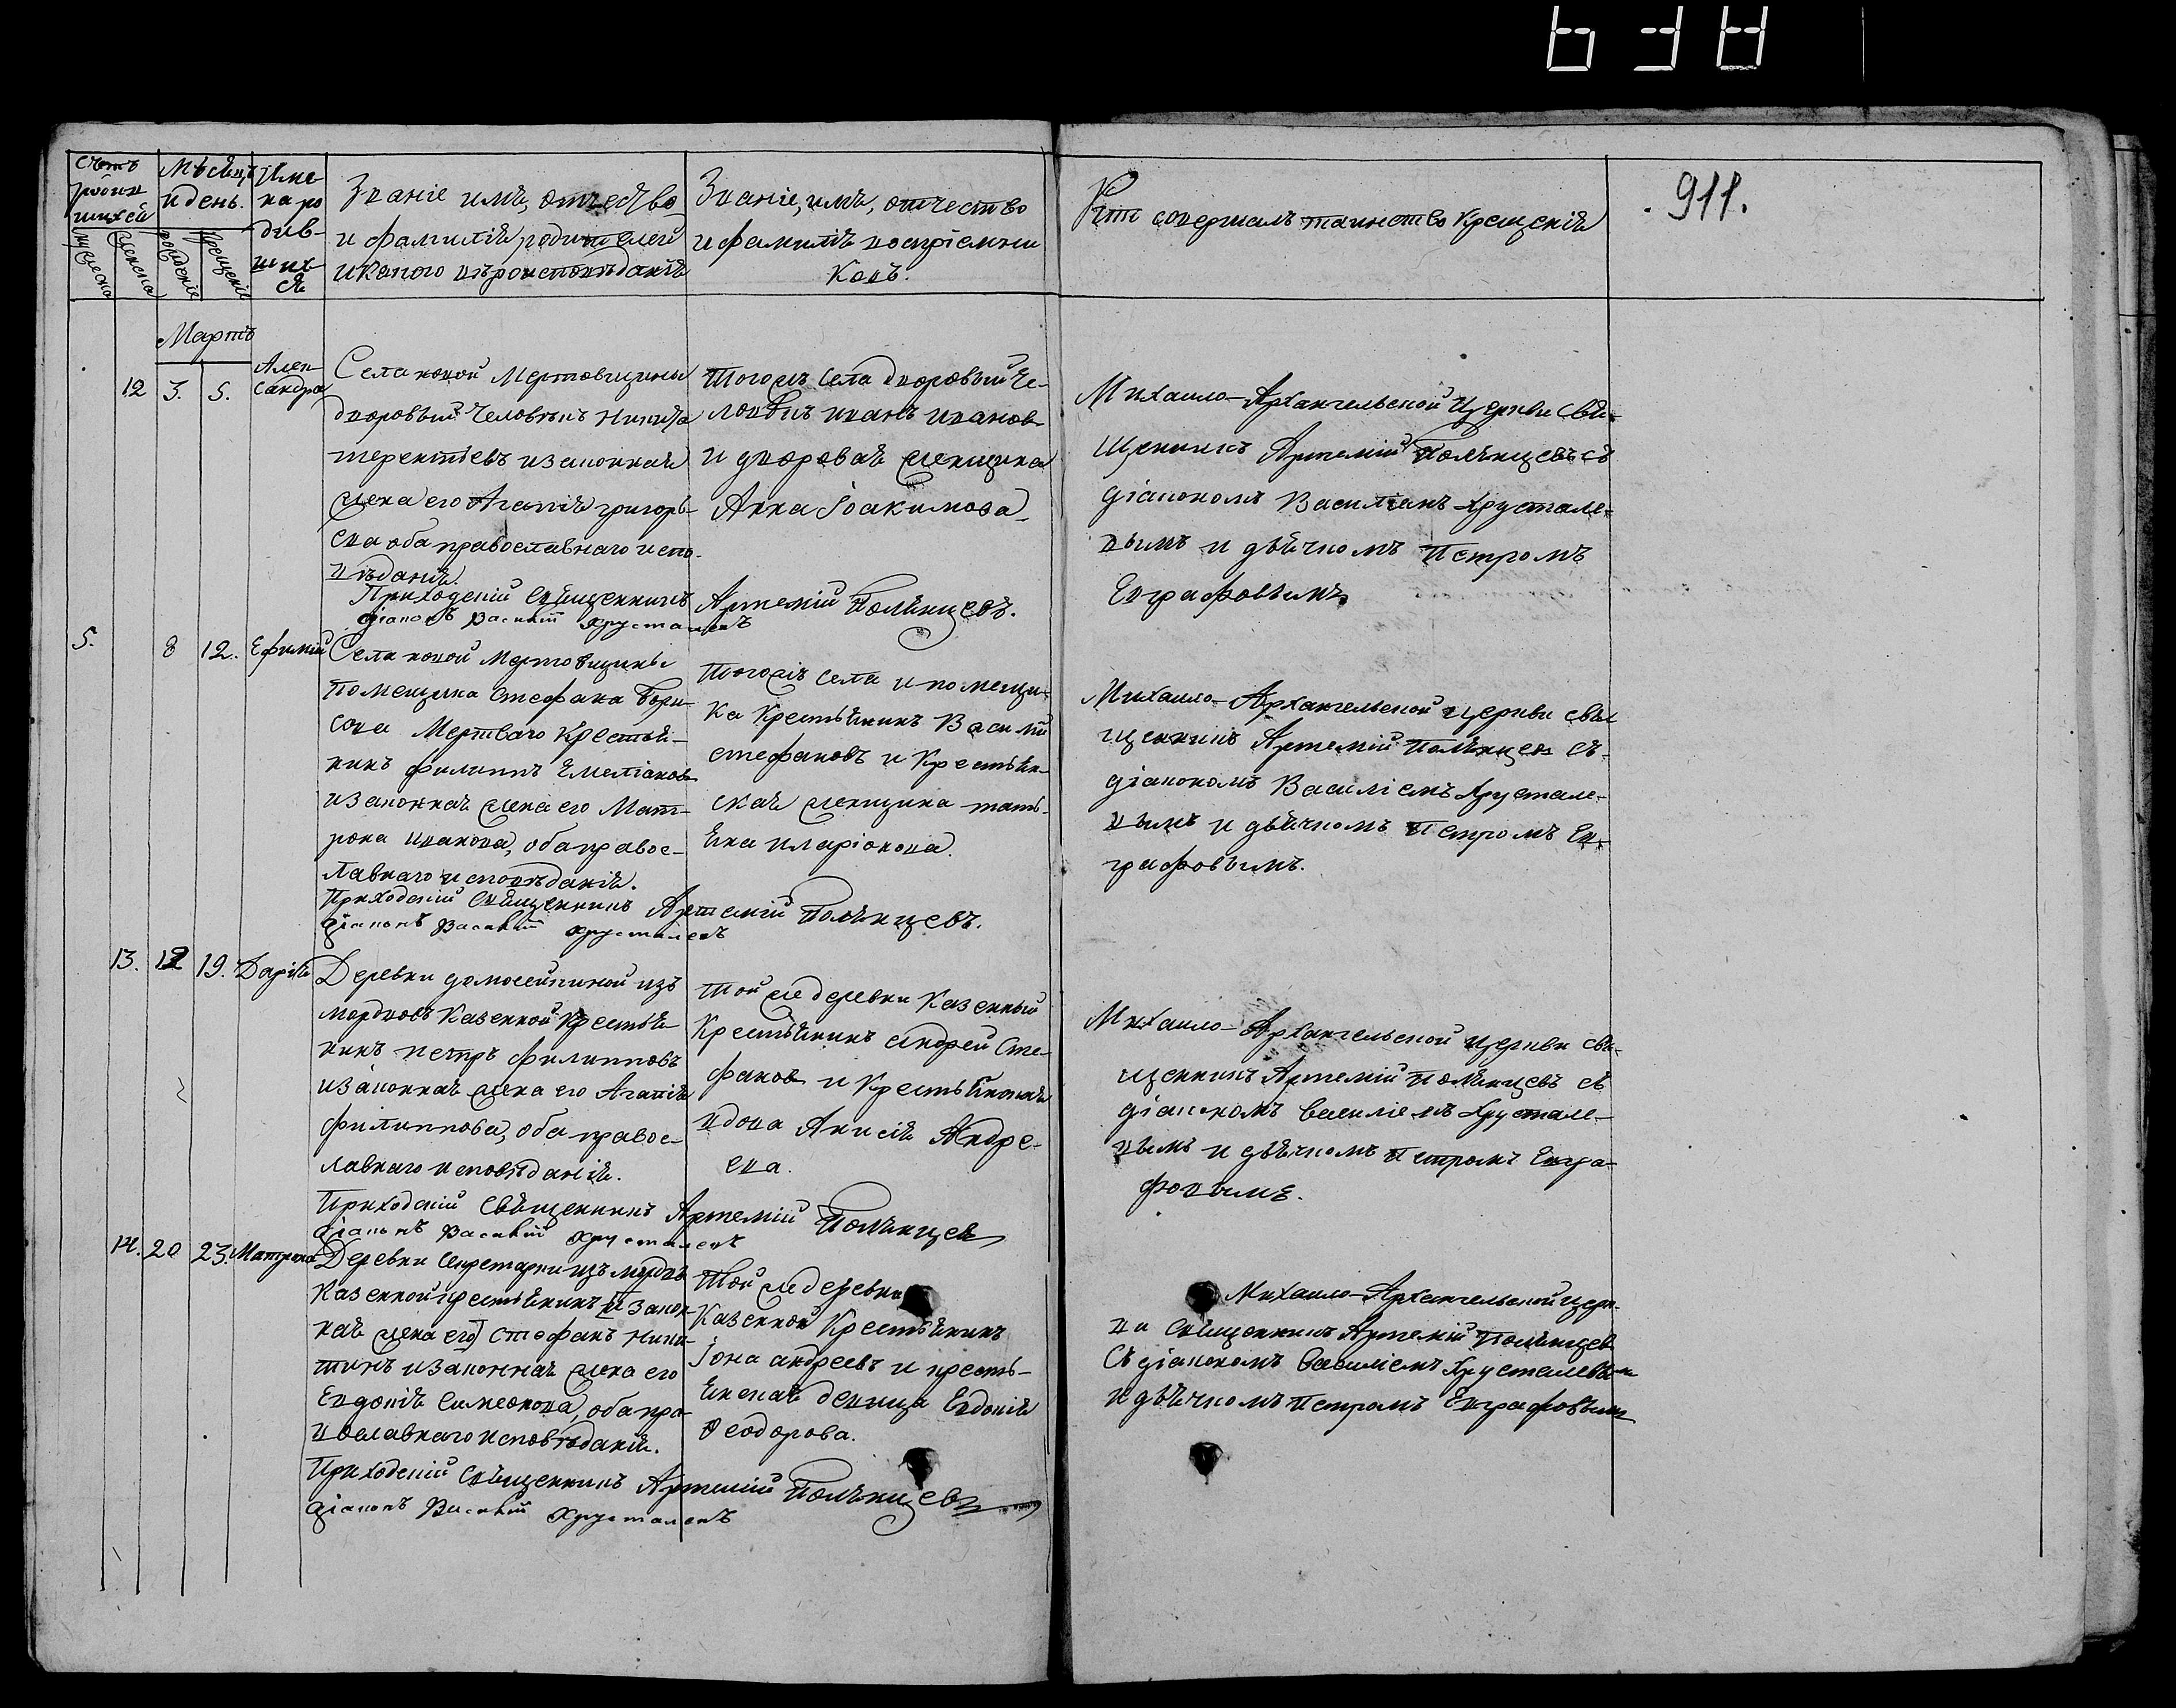 911.
Счетъ родившихся
мужеска
женска
Мѣсяцъ и день.
рожденіе
крещеніе
Имена родившихся
Званіе имя, отчество
и фамилія родителей
и какого вѣроисповѣданія
Званіе, имя, отчество
и фамилія воспріемни
ковъ.
Кто совершалъ таинство Крещенія
Мартъ
12
3.
5.
Александра
Села новой Мертовщины
дворовый Человѣкъ Никита
терентьевъ изаконная
жена его Агапія григорь
ева оба православнаго испо-
вѣданія.
тогожъ села дворовый Че-
ловѣкъ иванъ иванов
и дворовая женщина
Анна Іоакимова
Михаило-Архангельской Церкви Свя-
щенникъ Артемій Полянцевъ съ
діакономъ Василіемъ Хрустале-
вымъ и дьячкомъ Петромъ
Евграфовымъ
Приходскій Священникъ Артемій Полянцевъ.
діаконъ Василій Хрусталевъ
5.
8
12.
Ефимій
Села новой Мертовщины
Помещика Стефана Бори
сова Мертваго Крестья-
нинъ филиппъ Емеліанов
изаконная жена его Мат-
рона иванова, оба правос-
лавнаго исповѣданія.
Тогожъ села и помещи-
ка Крестьянинъ Василій
стефановъ и Крестьян-
ская женщина тать-
яна иларіонова.
Михаило-Архангельской церкви свя-
щенникъ Артемій Полянцев съ
діакономъ Василіемъ Хрустале-
вымъ и дьячкомъ Петромъ Ев-
графовымъ.
Приходскій Священникъ Артемій Полянцевъ.
діаконъ Василій Хрусталевъ
13.
12
19.
Дарія
Деревни домосейкиной изъ
мордвовъ Казенной Крестья
нинъ петръ филипповъ
изаконная жена его Агапія
филиппова, оба правос-
лавнаго исповѣданія.
Той же деревни Казенный
Крестьянинъ Андрей Сте-
фанов и Крестьянская
вдова Анисія Андре-
ева.
Михаило-Архангельской церкви свя-
щенникъ Артемій Полянцевъ съ
діакономъ василіемъ Хрустале-
вымъ и дьячкомъ Петромъ Евгра-
фовымъ.
Приходскій Священникъ Артемій Полянцев
діаконъ Василій Хрусталевъ
14.
20
23.
Матрона
Деревни Секретарки изъ мордвъ
Казенной крестьянинъ [изакон-
ная жена его] Стефанъ Ники-
тинъ изаконная жена его
Евдокія Симеонова, оба пра-
вославнаго исповѣданія.
Той же деревни
Казенной Крестьянинъ
Іона андреевъ и кресть-
янская девица Евдокія
Ѳеодорова.
Михаило-Архангельской церк-
ви Священникъ Артемій Полянцев
Съ діакономъ василіемъ Хрусталевым
и дьячкомъ Петромъ Евграфовым
Приходскій Священникъ Артемій Полянцевъ
діаконъ Василій Хрусталевъ